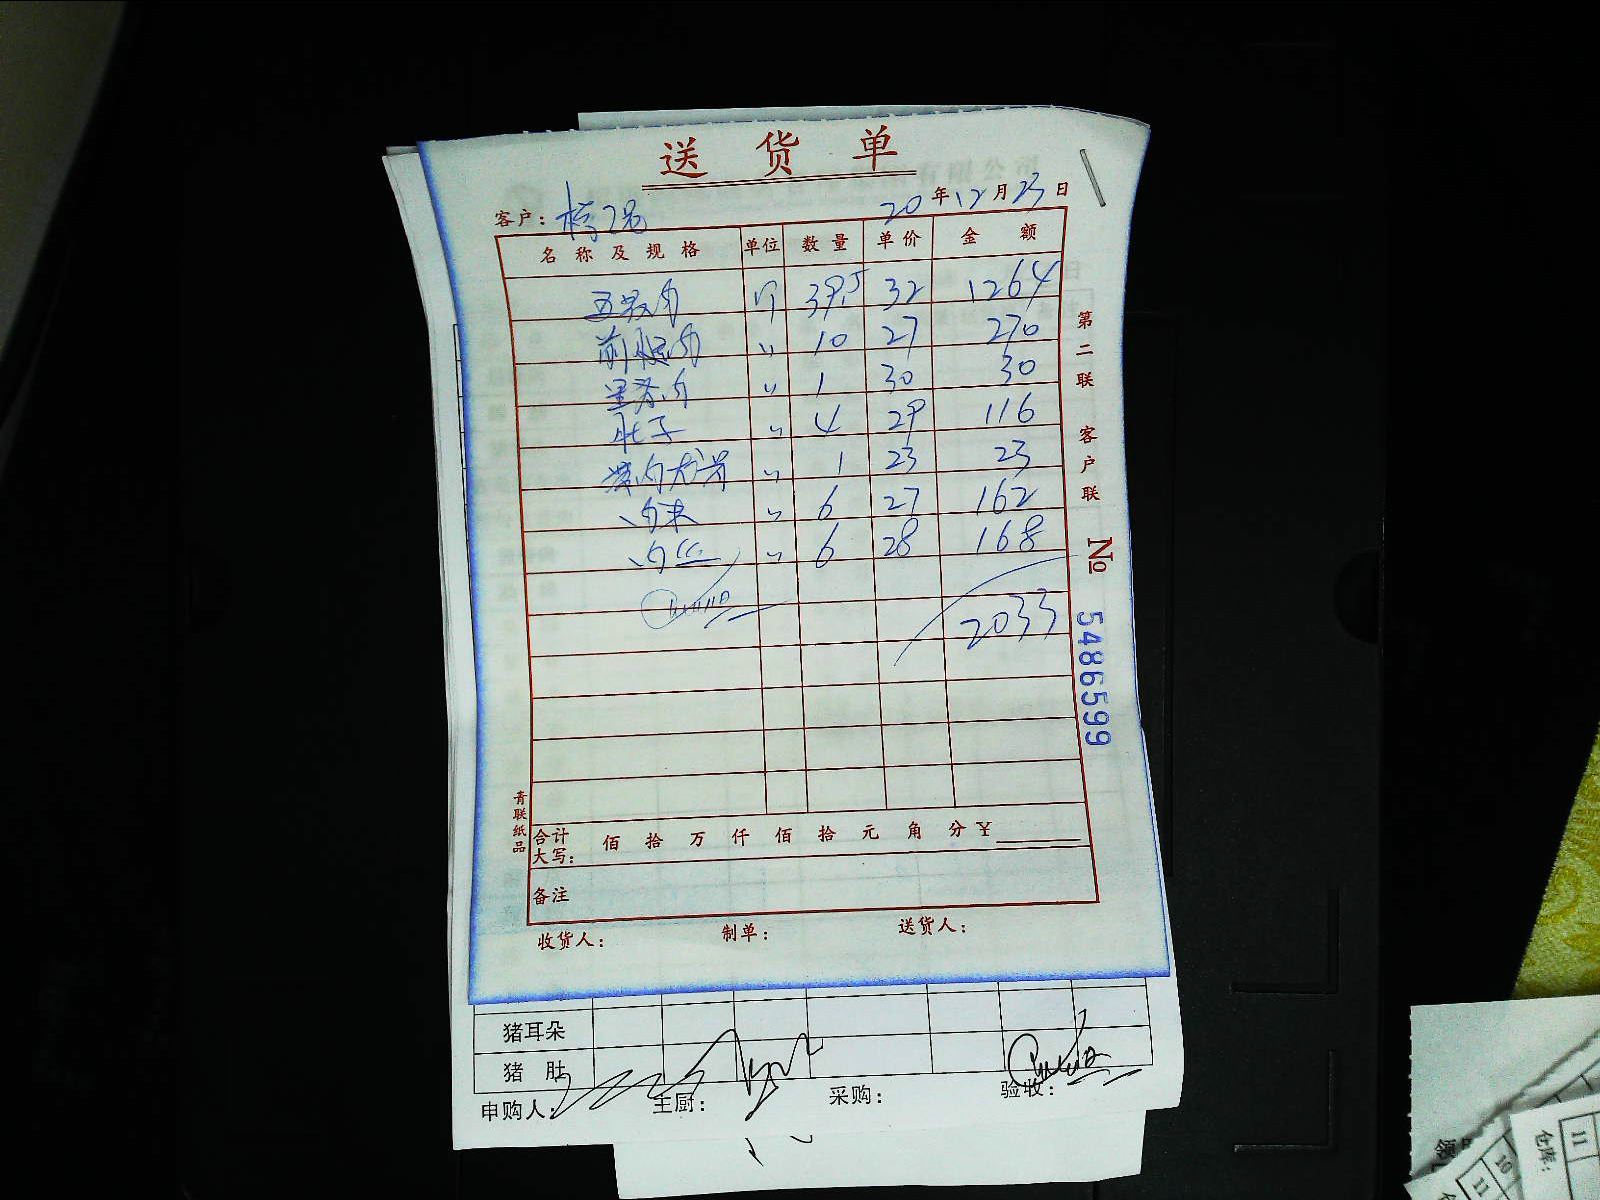 送 货 单
客户：
20 年 12 月 23 日
名 称 及 规 格 单位 数 量 单价 金 额
五花肉 斤 39.5 32 1264
前腿肉 〃 10 27 270
里脊肉 〃 1 30 30
肚子 〃 4 29 116
带肉龙骨 〃 1 23 23
肉末 〃 6 27 162
肉丝 〃 6 28 168
2033
合计大写： 佰 拾 万 仟 佰 拾 元 角 分 ¥
备注
收货人： 制单： 送货人：
第二联 客户联
No 5486599
青联纸品
猪耳朵
猪 肚
申购人： 主厨： 采购： 验收：
仓库：
11
10
11